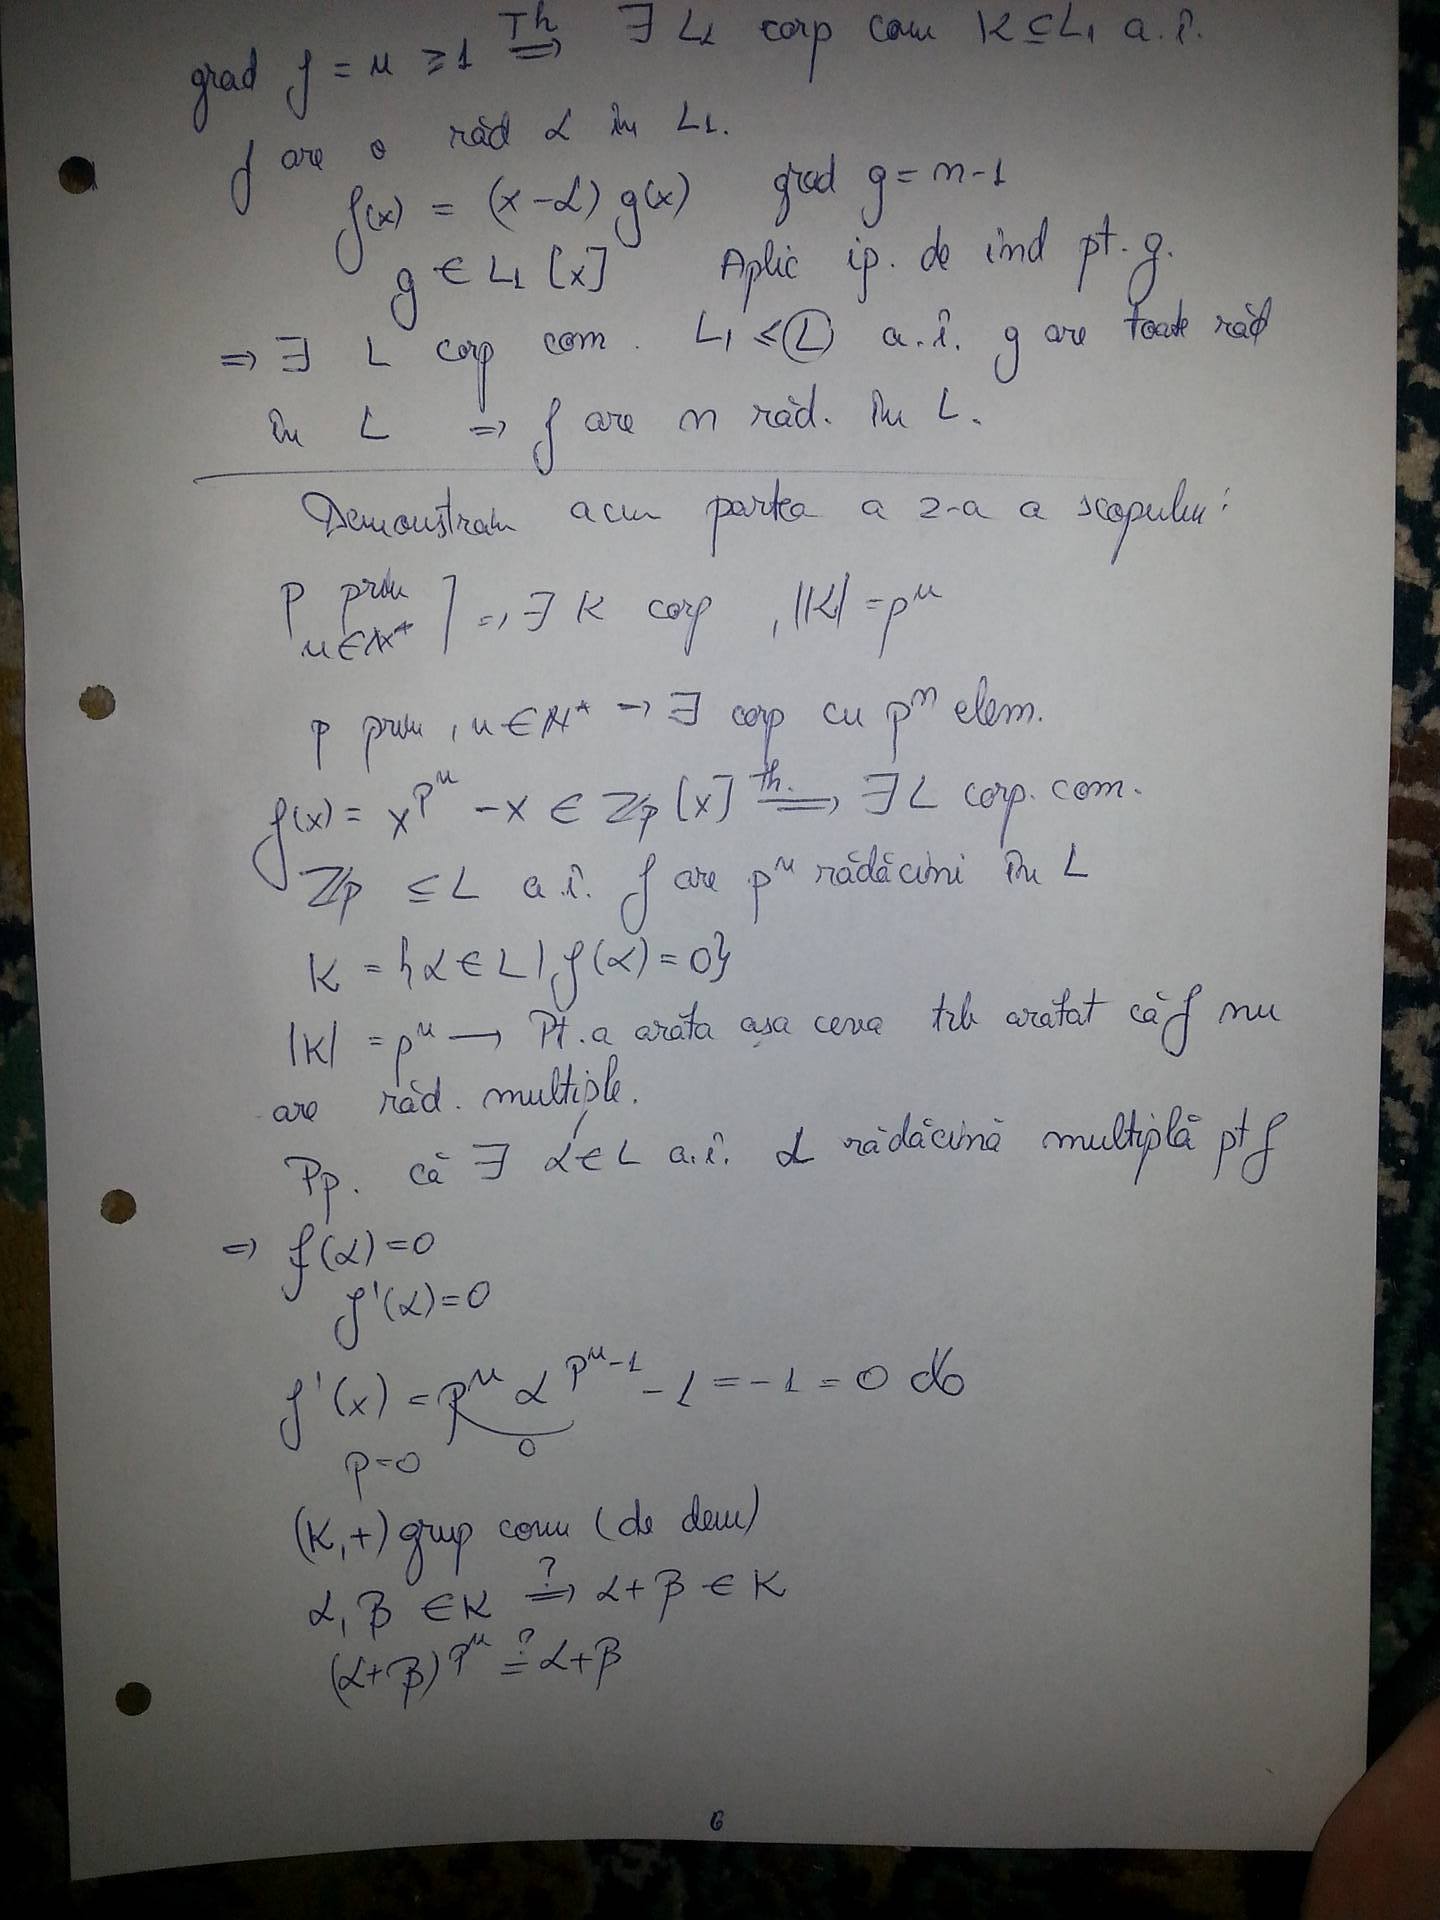 grad f = n ≥ 1 Th ⟹ ∃ L1 corp com K ⊆ L1 a.î.
f are o răd α în L1.
f(x) = (x-α) g(x) grad g = n-1
g ∈ L1 [x] Aplic ip. de ind pt. g.
⇒ ∃ L corp com. L1 ≤ L a.î. g are toate răd
în L ⇒ f are n răd. în L.
Demonstram acum partea a 2-a a scopului:
p prim
n∈N* ] ⇒ ∃ K corp , |K| = pⁿ
p prim , n∈N* → ∃ corp cu pⁿ elem.
f(x) = x^pⁿ - x ∈ Zp [x] th. ⟹ ∃ L corp. com.
Zp ≤ L a.î. f are pⁿ rădăcini în L
K = {α∈L | f(α) = 0}
|K| = pⁿ → Pt. a arăta așa ceva trb arătat că f nu
are răd. multiple.
Pp. că ∃ α∈L a.î. α rădăcină multiplă pt f
⇒ f(α) = 0
f'(α) = 0
f'(x) = pⁿ α^(pⁿ-1) - 1 = -1 = 0 do
0
p=0
(K,+) grup com (de dem)
α, β ∈ K ?⟹ α+β ∈ K
(α+β)^pⁿ ?= α+β
6